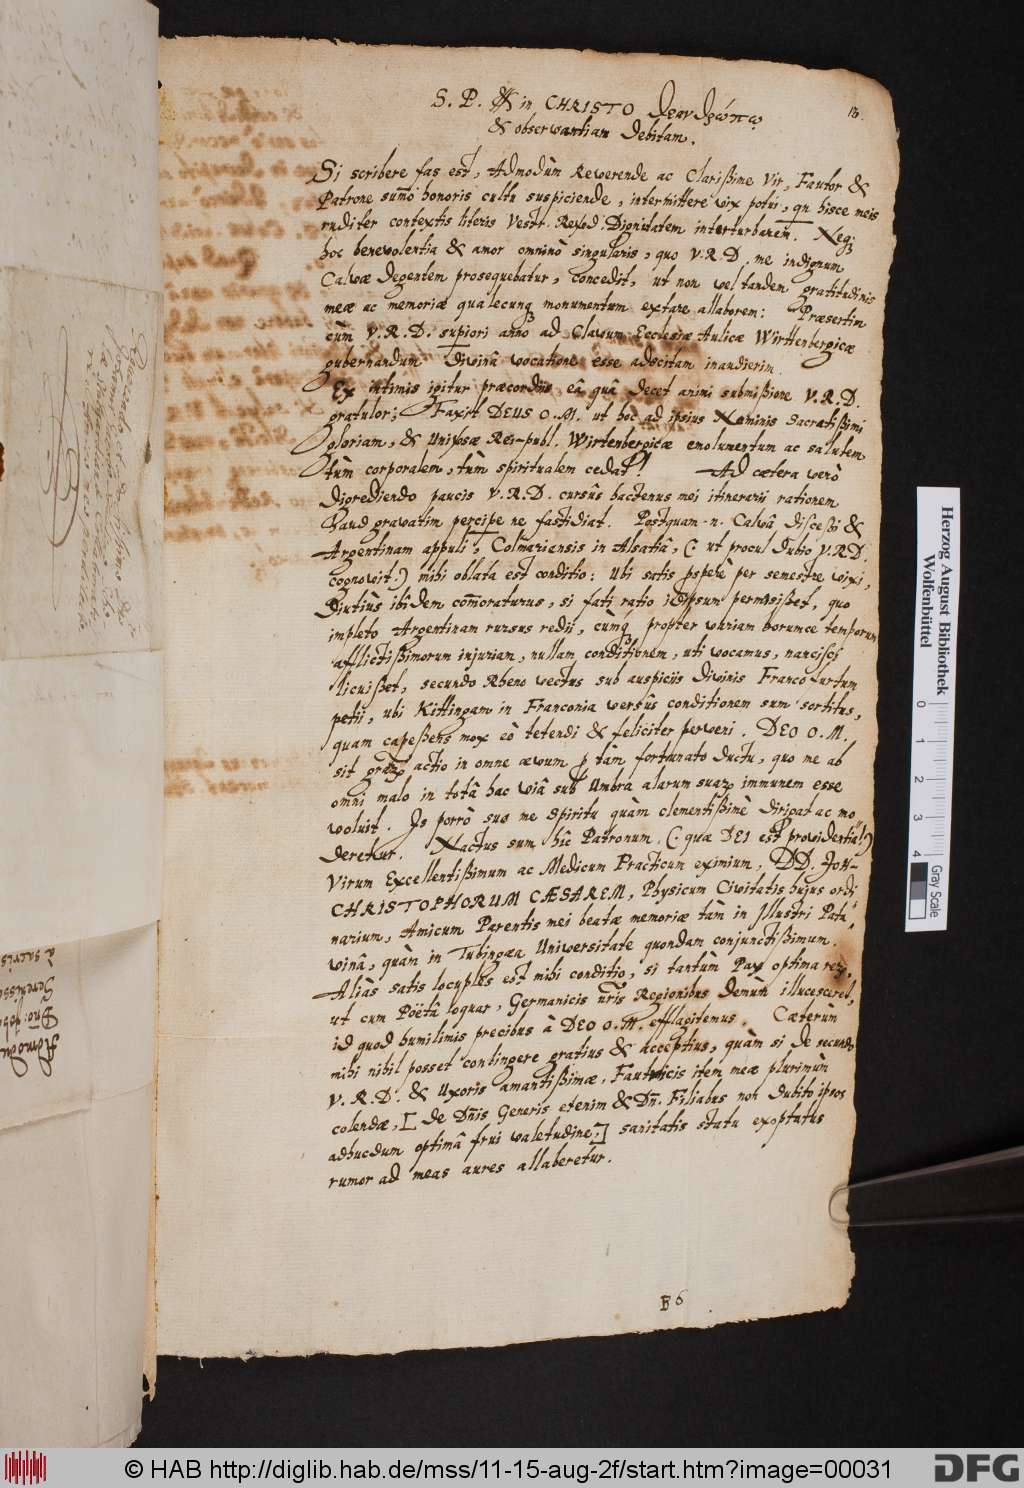 13.
S. P. in CHRISTO θεανθρώπῳ
& observantiam debitam.
Si scribere fas est, Admodùm Reverende ac Clarißime Vir, Fautor &
Patrone sum̄o honoris cultu suspiciende, intermittere vix potui, qn hisce meis
ruditer contextis literis Vestr. Revd. Dignitatem interturbarem. Neq;
hoc benevolentia & amor omninò singularis, quo V.R.D. me indignum
Calvæ degentem prosequebatur, concedit, ut non vel tandem gratitudinis
meæ ac memoriæ qualecunq; monumentum extare allaborem: Præsertim
cùm V.R.D. supiori anno ad Clavum Ecclesiæ Aulicæ Wirttenbergicæ
gubernandum divinâ vocatione esse adscitam inaudierim.
Ex intimis igitur præcordiis eâ quâ decet animi submißione V.R.D.
gratulor; Faxit DEUS O.M. ut hoc ad ipsius Nominis Sacratißimi
gloriam, & Univsæ Rei-publ. Wirtenbergicæ emolumentum ac salutem
tùm corporalem, tùm spiritualem cedat! Ad cætera verò
digrediendo paucis V.R.D. cursûs hactenus mei itinerarii rationem
haud gravatim percipe ne fastidiat. Postquam .n. Calvâ discessi &
Argentinam appuli, Colmariensis in Alsatiâ, (: ut procul dubio V.R.D.
cognovit:) mihi oblata est conditio: Ubi satis pspere per semestre vixi,
Diutiùs ibidem com̄oraturus, si fati ratio idipsum permisißet, quo
impleto Argentinam rursus redii, cùmq; propter variam horumce temporum
afflictißimorum injuriam, nullam conditionem, uti vocamus, nancisci
licuißet, secundo Rheno vectus sub auspiciis divinis Francofurtum
petii, ubi Kittingam in Franconia versûs conditionem sum sortitus,
quam capeßens mox eò tetendi & feliciter perveni. DEO O.M.
sit graz actio in omne ævum p tàm fortunato ductu, quo me ab
omni malo in totâ hac viâ sub Umbra alarum suaz immunem esse
voluit. Is porrò suo me Spiritu quàm clementißimè dirigat ac mo-
deretur. Nactus sum hîc Patronum, (: quæ DEI est providentia!:)
Virum Excellentißimum ac Medicum Practicum eximium, DD. JOH-
CHRISTOPHORUM CÆSAREM, Physicum Civitatis hujus ordi-
narium, Amicum Parentis mei beatæ memoriæ tàm in Illustri Pata-
vinâ, quàm in Tubingæa Universitate quondam conjunctißimum.
Aliàs satis locuples est mihi conditio, si tantùm Pax optima rez,
ut cum Poëtâ loquar, Germanicis nr̄is Regionibus demùm illucesceret,
id quod humilimis precibus à DEO O.M. efflagitemus. Cæterùm
mihi nihil posset contingere gratius & acceptius, quàm si de secundo
V.R.D. & Uxoris amantißimæ, Fautricis item meæ plurimùm
colendæ, [: de Dn̄is Generis etenim & Dn̄. Filiabus non dubito ipsos
adhucdum optimâ frui valetudine:] sanitatis statu exoptatus
rumor ad meas aures allaberetur.
B 6
Herzog August Bibliothek
Wolfenbüttel
0 1 2 3 4
Gray Scale
© HAB http://diglib.hab.de/mss/11-15-aug-2f/start.htm?image=00031
DFG